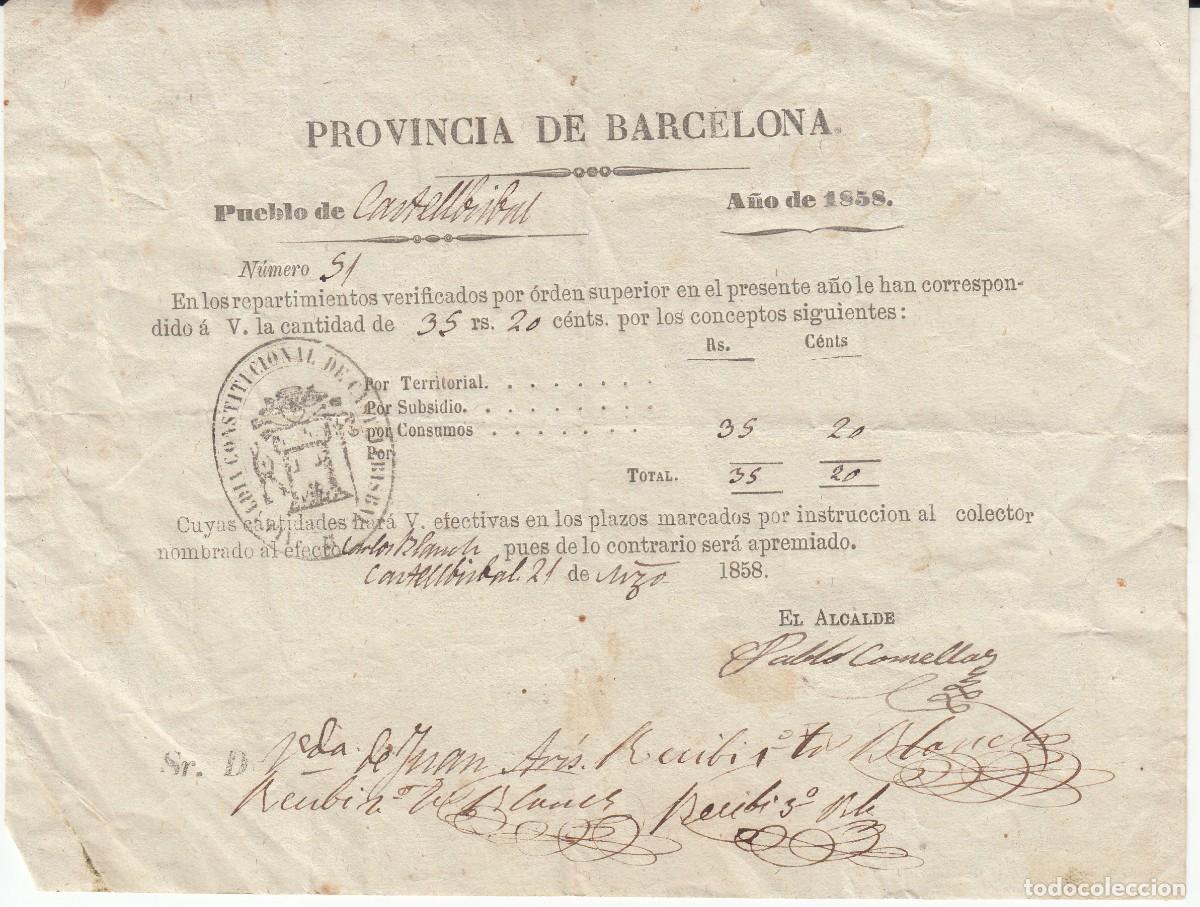 PROVINCIA DE BARCELONA.
Pueblo de Castellbisbal
Año de 1858.
Número 51
En los repartimientos verificados por órden superior en el presente año le han correspon-
dido á V. la cantidad de 35 rs. 20 cénts. por los conceptos siguientes:
Rs. Cénts
Por Territorial. . . . . . . .
Por Subsidio. . . . . . . . .
por Consumos . . . . . . . 35 20
Por
TOTAL. 35 20
ALCALDIA CONSTITUCIONAL DE CASTELLBISBAL
Cuyas cantidades hará V. efectivas en los plazos marcados por instruccion al colector
nombrado al efecto Carlos Blanch pues de lo contrario será apremiado.
Castellbisbal 21 de Mzo 1858.
EL ALCALDE
Pablo Comellas
Sr. D. Vda de Juan Arís. Recibi 1º Blanch
Recibi 2º Blanch Recibi 3º Bh
todocoleccion